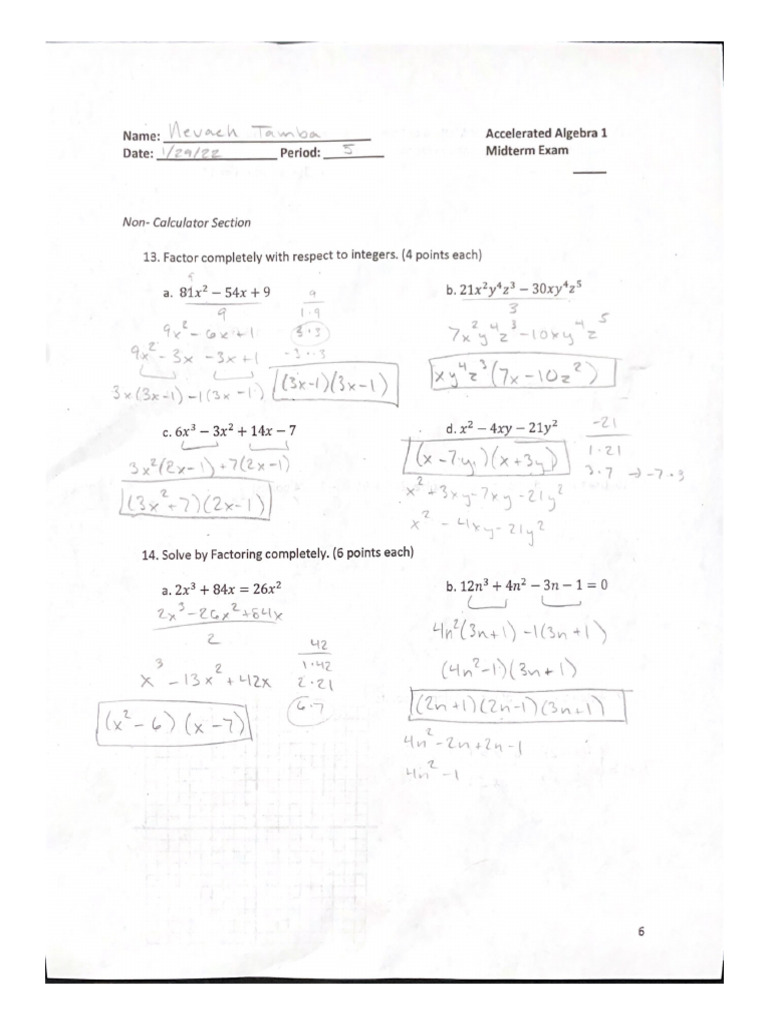 Name: Nevaeh Tamba Accelerated Algebra 1
Date: 1/29/22 Period: 5 Midterm Exam
Non- Calculator Section
13. Factor completely with respect to integers. (4 points each)
a. 81x² − 54x + 9
9
9x² − 6x + 1
9x² − 3x − 3x + 1
3x(3x−1) −1(3x −1)
(3x−1)(3x−1)
9
1·9
3·3
−3·−3
b. 21x²y⁴z³ − 30xy⁴z⁵
3
7x²y⁴z³ − 10xy⁴z⁵
xy⁴z³(7x − 10z²)
c. 6x³ − 3x² + 14x − 7
3x²(2x−1) + 7(2x−1)
(3x²+7)(2x−1)
d. x² − 4xy − 21y²
(x − 7y)(x + 3y)
x² + 3xy − 7xy − 21y²
x² − 4xy − 21y²
−21
1·21
3·7 → −7·3
14. Solve by Factoring completely. (6 points each)
a. 2x³ + 84x = 26x²
2x³ − 26x² + 84x
2
x³ − 13x² + 42x
(x² − 6)(x − 7)
42
1·42
2·21
6·7
b. 12n³ + 4n² − 3n − 1 = 0
4n²(3n+1) −1(3n+1)
(4n²−1)(3n+1)
(2n+1)(2n−1)(3n+1)
4n² − 2n + 2n − 1
4n² − 1
6